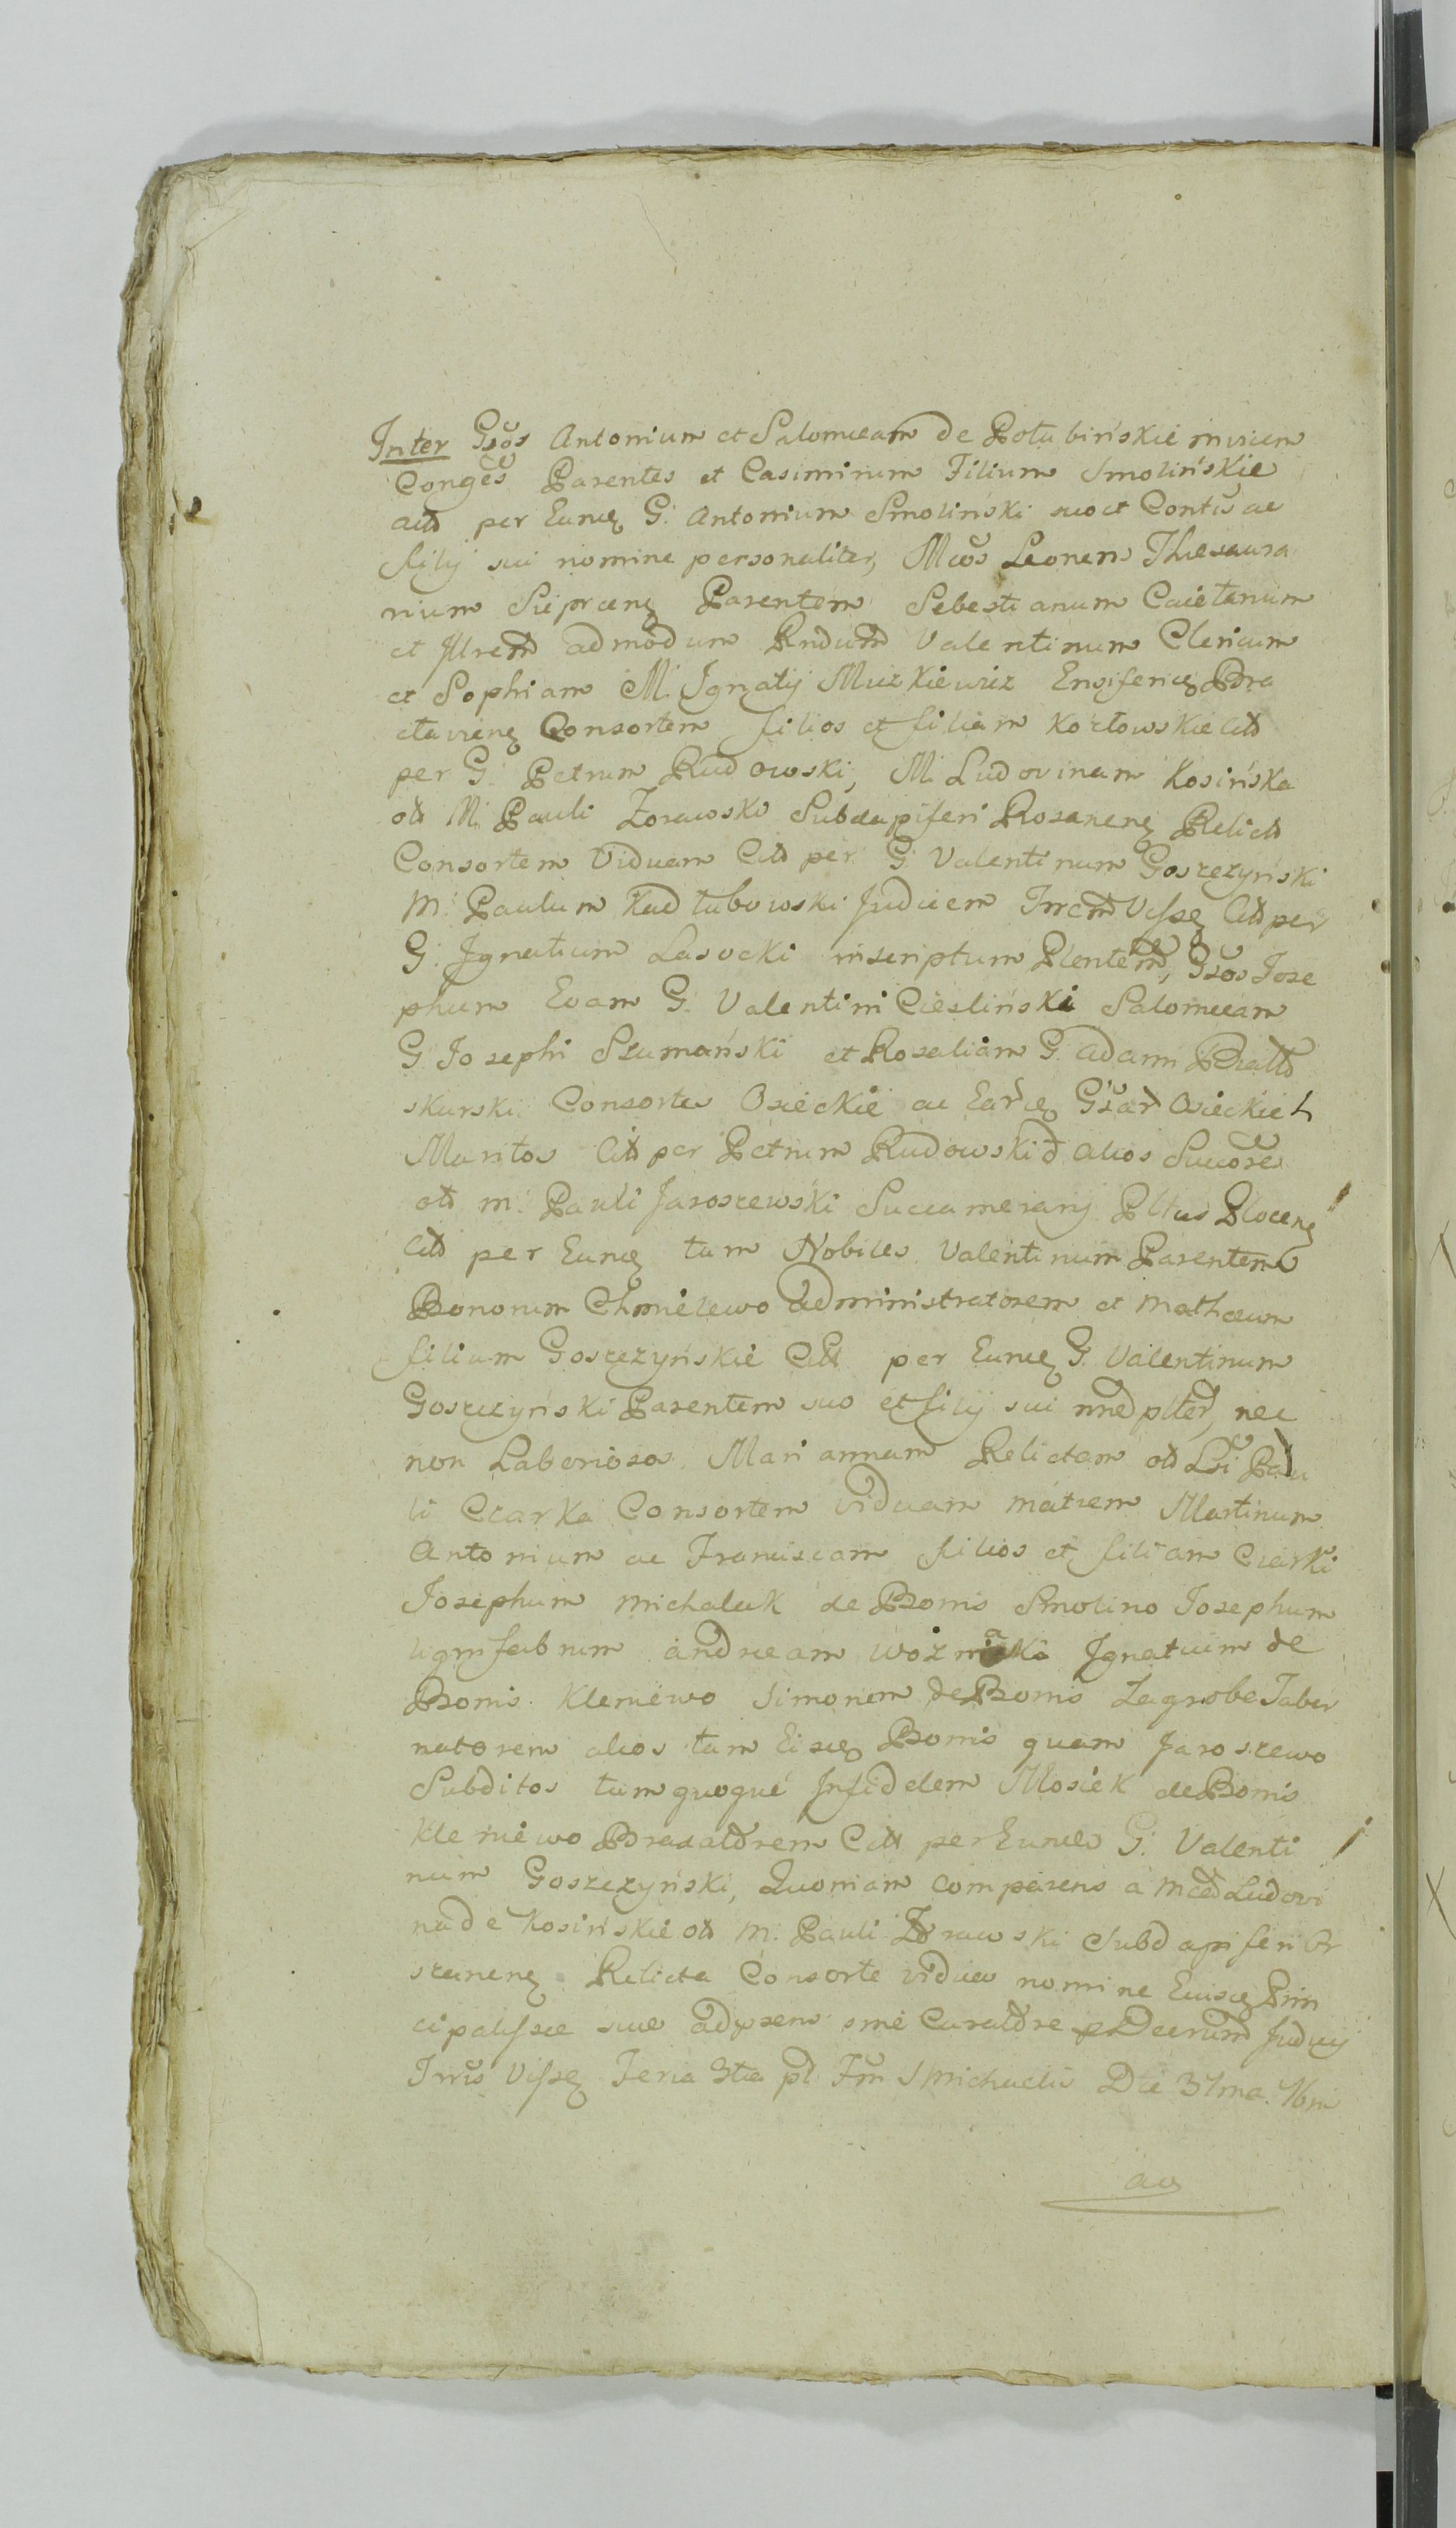 Inter Gsos Antonium et Salomeam de Połubińskie invicem
Conges Parentes et Casimirum Filium Smolińskie
actō per Eundę G. Antonium Smoliński suo et Contis ac
filij sui nomine personaliter, Mcos Leonem Thesaura
rium Sieprceng Parentem Sebestianum Caietanum
et Jllrem admodum Rndum Valentinum Clericum
et Sophiam M. Ignatij Mieżkiewicz Ensiferi
Consortem filios et filiam Kozłowskie Citō
per G. Petrum Rudowski, M. Ludovinam Kosińska
otō M. Pauli Zorawski Subdapiferi Rosaneng Relictō
Consortem Viduam Citō per G. Valentinum Goszczyński
M. Paulum Kadłubowski Judicem Trrem Visse Citō per
G. Ignatium Lasocki inscriptum Plentem, Gsos Jose
phum Evam G. Valentini Ciesliński Salomeam
G Josephi Szumański et Rosaliam G. Adami Białto
skurski Consortes Osieckie ac Earde Gsar Osieckich
Maritos Citō per Petrum Rudowski alios Succores
otō M. Pauli Jaroszewski Succamerarij Pltus Ploceng
Citō per Eundę tum Nobiles Valentinum Parentem
Bonorum Chmielewo Administratorem et Mathæum
filium Goszczyńskie Citt per Eundę G. Valentinum
Goszczyński Parentem suo et filij sui nne plter, nec
non Laboriosa Mariannam Relictam otō Lsi Pau
li Czarka Consortem viduam matrem Martinum
Antonium ac Franciscam filios et filiam Czarki
Josephum Michalak de Bonis Smolino Josephum
lignifabrum Andream Woźniaka Ignatium de
Bonis Kleniewo Simonem de Bonis Zagrobe Taber
natorem alios tam Eisdę Bonis quam Jaroszewo
Subditos tum quoque Infidelem Mosiek de Bonis
Kleniewo Braxatorem Citt per Eundę G. Valenti
num Goszczyński, Quoniam comparens a Mca Ludovi
na de Kosińskie otō M. Pauli Zorawski Subdapiferi Ro
zaneng Relicta Consorte vidua nomine Eiusdę Prin
cipalissæ suæ adpræsens sine Curatore p Decrum Judicij
Trris Visse Feria 3tia pt Fm S Michaelis Die 31ma
ao